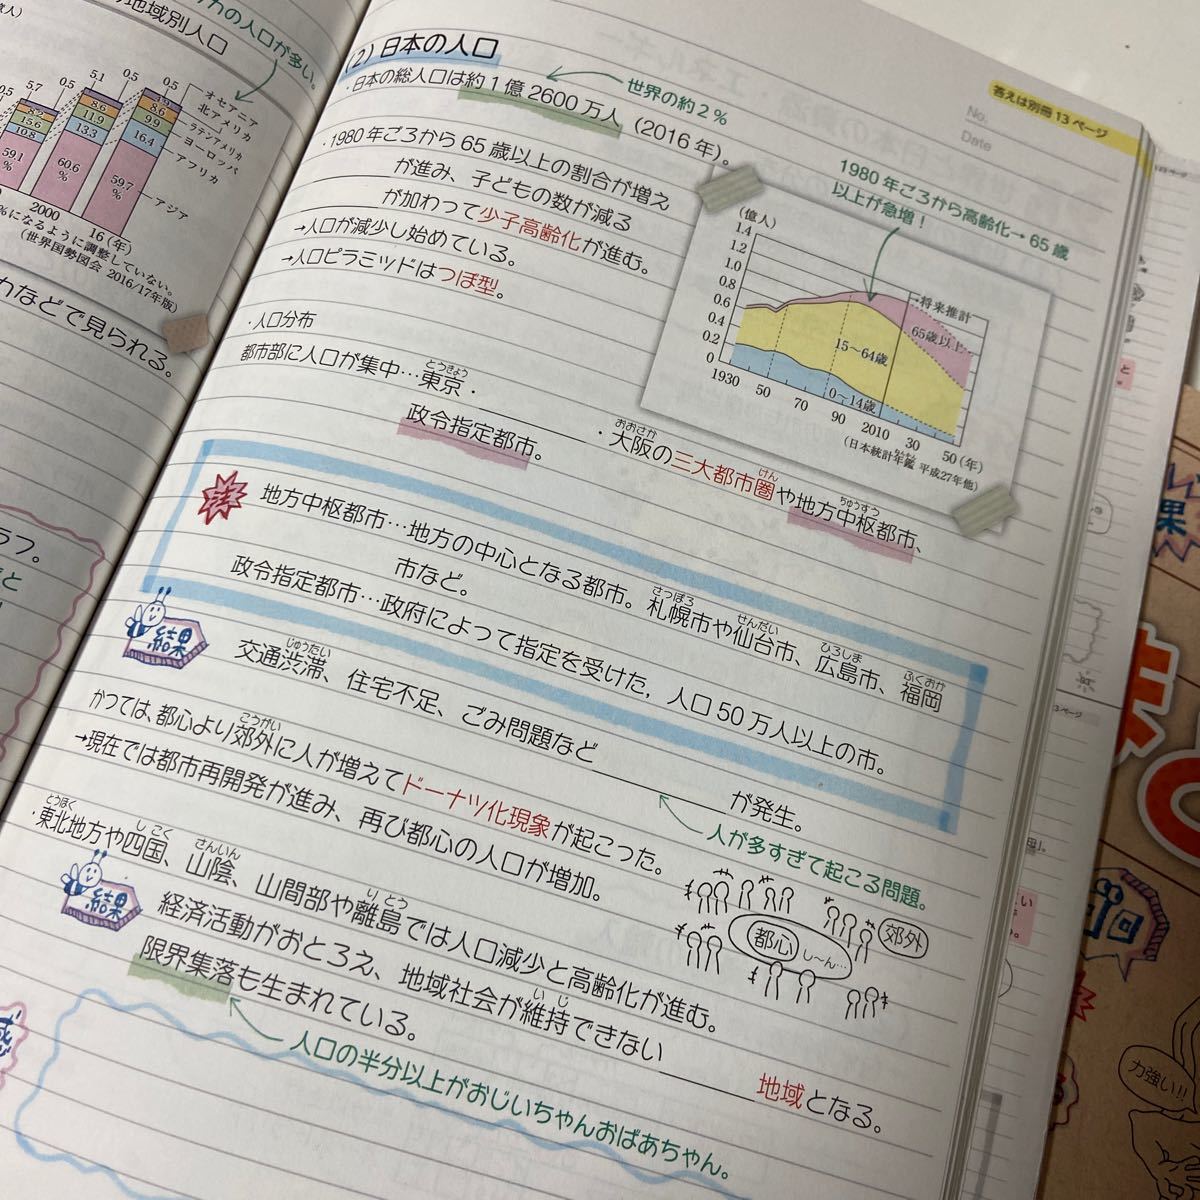 カの人口が多い。
地域別人口
人)
5.7
5.1
0.5
0.5
0.5
0.5
オセアニア
北アメリカ
ラテンアメリカ
ヨーロッパ
アフリカ
アジア
8.2
15.6
10.8
59.1
%
8.6
11.9
13.3
60.6
%
4.9
8.6
9.9
16.4
59.7
%
2000
16(年)
%になるように調整していない。
(世界国勢図会 2016/17年版)
カなどで見られる。
ラフ。
(2)日本の人口
・日本の総人口は約1億2600万人(2016年)。
世界の約2%
・1980年ごろから65歳以上の割合が増え
が進み、子どもの数が減る
が加わって少子高齢化が進む。
→人口が減少し始めている。
→人口ピラミッドはつぼ型。
答えは別冊13ページ
No.
Date
1980年ごろから高齢化→65歳
以上が急増!
(億人)
1.4
1.2
1.0
0.8
0.6
0.4
0.2
0
将来推計
65歳以上
15~64歳
0~14歳
1930
50
70
90
2010
30
50(年)
(日本統計年鑑 平成27年他)
・人口分布
都市部に人口が集中…東京・
とうきょう
・大阪の三大都市圏や地方中枢都市、
おおさか
けん
ちゅうすう
政令指定都市。
注
地方中枢都市…地方の中心となる都市。札幌市や仙台市、広島市、福岡
さっぽろ
せんだい
ひろしま
ふくおか
市など。
政令指定都市…政府によって指定を受けた,人口50万人以上の市。
結果
交通渋滞、住宅不足、ごみ問題など
じゅうたい
が発生。
人が多すぎて起こる問題。
かつては、都心より郊外に人が増えてドーナツ化現象が起こった。
こうがい
→現在では都市再開発が進み、再び都心の人口が増加。
都心
し〜ん…
郊外
・東北地方や四国、山陰、山間部や離島では人口減少と高齢化が進む。
とうほく
しこく
さんいん
りとう
結果
経済活動がおとろえ、地域社会が維持できない
いじ
地域となる。
限界集落も生まれている。
人口の半分以上がおじいちゃんおばあちゃん。
力強い!!